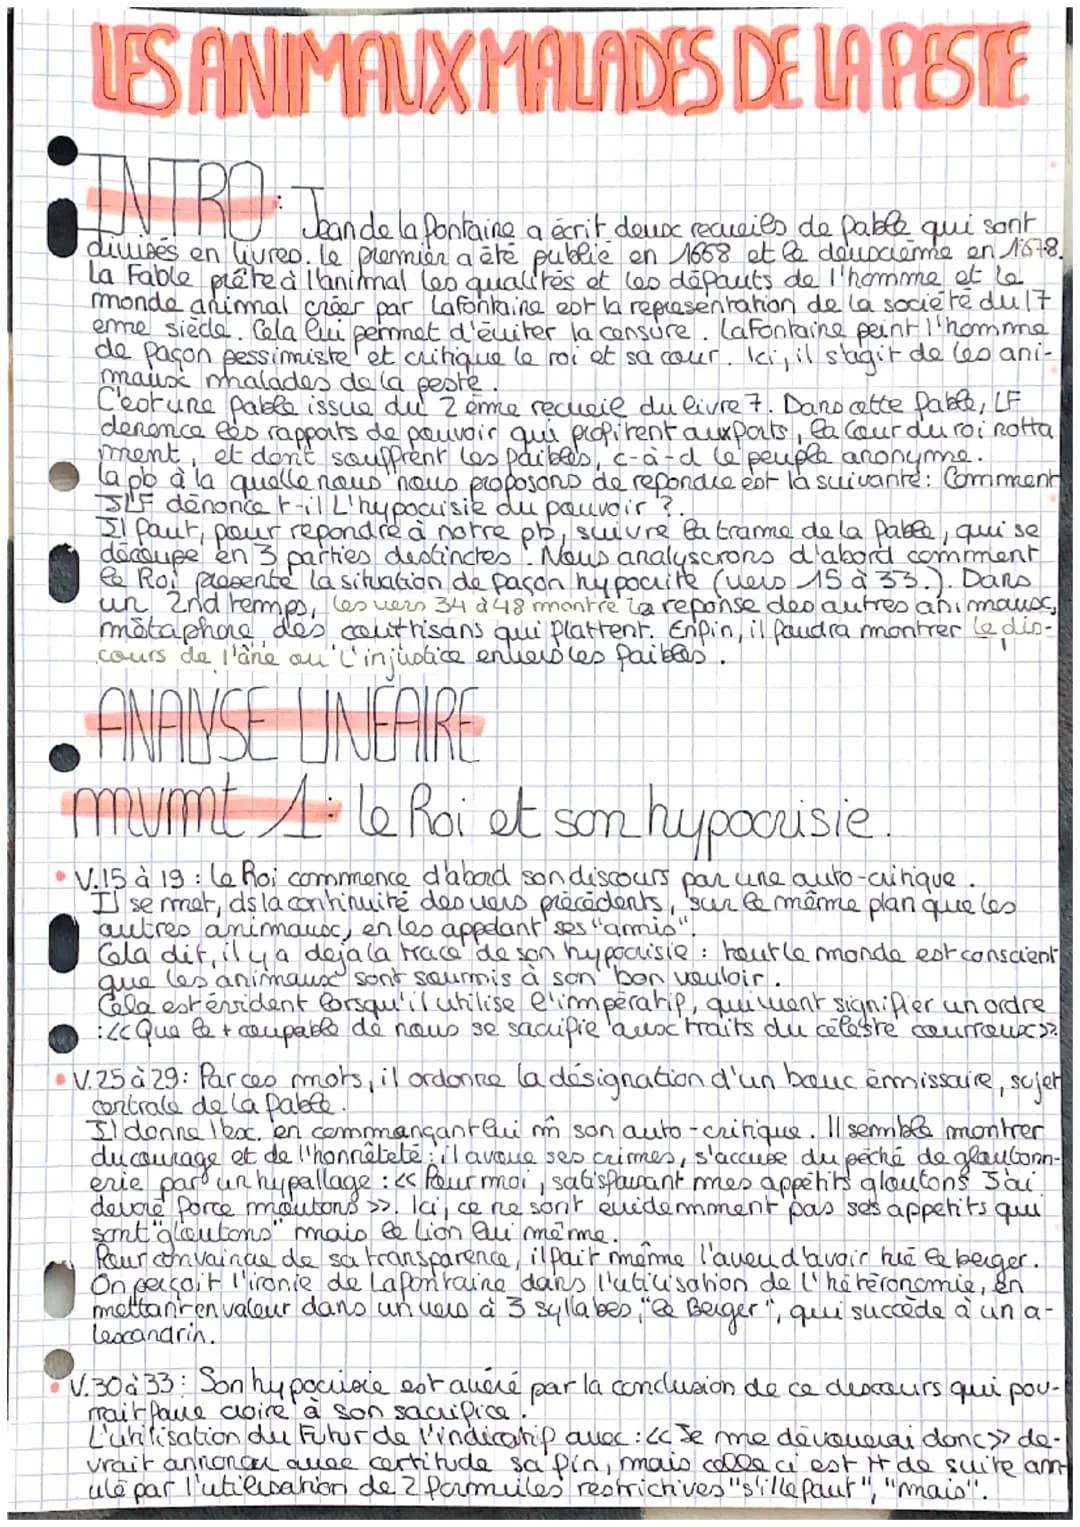 LES ANIMAUX MALADES DE LA PESTE
INTRO: Jean de la Fontaine a écrit deux recueils de fable qui sont
divisés en livres. le premier a été publié en 1668 et le deuxième en 1678.
La Fable prête à l'animal les qualités et les défauts de l'homme et le
monde animal créer par Lafontaine est la représentation de la société du 17
ème siècle. Cela lui permet d'éviter la censure. LaFontaine peint l'homme
de façon pessimiste et critique le roi et sa cour. Ici, il s'agit de les ani-
maux malades de la peste.
C'est une fable issue du 2ème recueil du livre 7. Dans cette fable, LF
dénonce les rapports de pouvoir qui profitent aux forts, la Cour du roi notta
ment, et dont souffrent les faibles, c-à-d le peuple anonyme.
la pb à la quelle nous nous proposons de repondre est la suivante: Comment
JLF dénonce t-il L'hypocrisie du pouvoir ?
Il faut, pour repondre à notre pb, suivre la trame de la fable, qui se
découpe en 3 parties distinctes. Nous analyserons d'abord comment
le Roi présente la situation de façon hypocrite (vers 15 à 33.). Dans
un 2nd temps, les vers 34 à 48 montre la reponse des autres animaux,
métaphore des courtisans qui flattent. Enfin, il faudra montrer le dis-
cours de l'âne ou l'injustice envers les faibles.
ANALYSE LINEAIRE
mvmt 1: le Roi et son hypocrisie.
• V.15 à 19 : le Roi commence d'abord son discours par une auto-critique.
Il se met, ds la continuité des vers précédents, sur le même plan que les
autres animaux, en les appelant ses "amis".
Cela dit, il y a déjà la trace de son hypocrisie : tout le monde est conscient
que les animaux sont soumis à son bon vouloir.
Cela est évident lorsqu'il utilise l'impératif, qui vient signifier un ordre
: << Que le + coupable de nous se sacrifie aux traits du céleste courroux >>.
• V.25 à 29: Par ces mots, il ordonne la désignation d'un bouc émmissaire, sujet
centrale de la fable.
Il donne l'ex. en commançant lui m̂ son auto-critique. Il semble montrer
du courage et de l'honnêteté : il avoue ses crimes, s'accuse du péché de gloutonn-
erie par un hypallage : << Pour moi, satisfaisant mes appétits gloutons J'ai
dévoré force moutons >>. Ici, ce ne sont evidemment pas ses appetits qui
sont "gloutons" mais le Lion lui même.
Pour convaincre de sa transparence, il fait même l'aveu d'avoir tué le berger.
On perçoit l'ironie de Lafontaine dans l'utilisation de l'hétéronomie, en
mettant en valeur dans un vers à 3 syllabes, "le Berger", qui succède à un a-
lexandrin.
• V.30 à 33 : Son hypocrisie est avéré par la conclusion de ce discours qui pou-
rrait faire croire à son sacrifice.
L'utilisation du Futur de l'indicatif avec : << Je me dévouerai donc >> de-
vrait annoncer avec certitude sa fin, mais celle ci est tt de suite ann-
ulé par l'utilisation de 2 formules restrictives "s'il le faut", "mais".